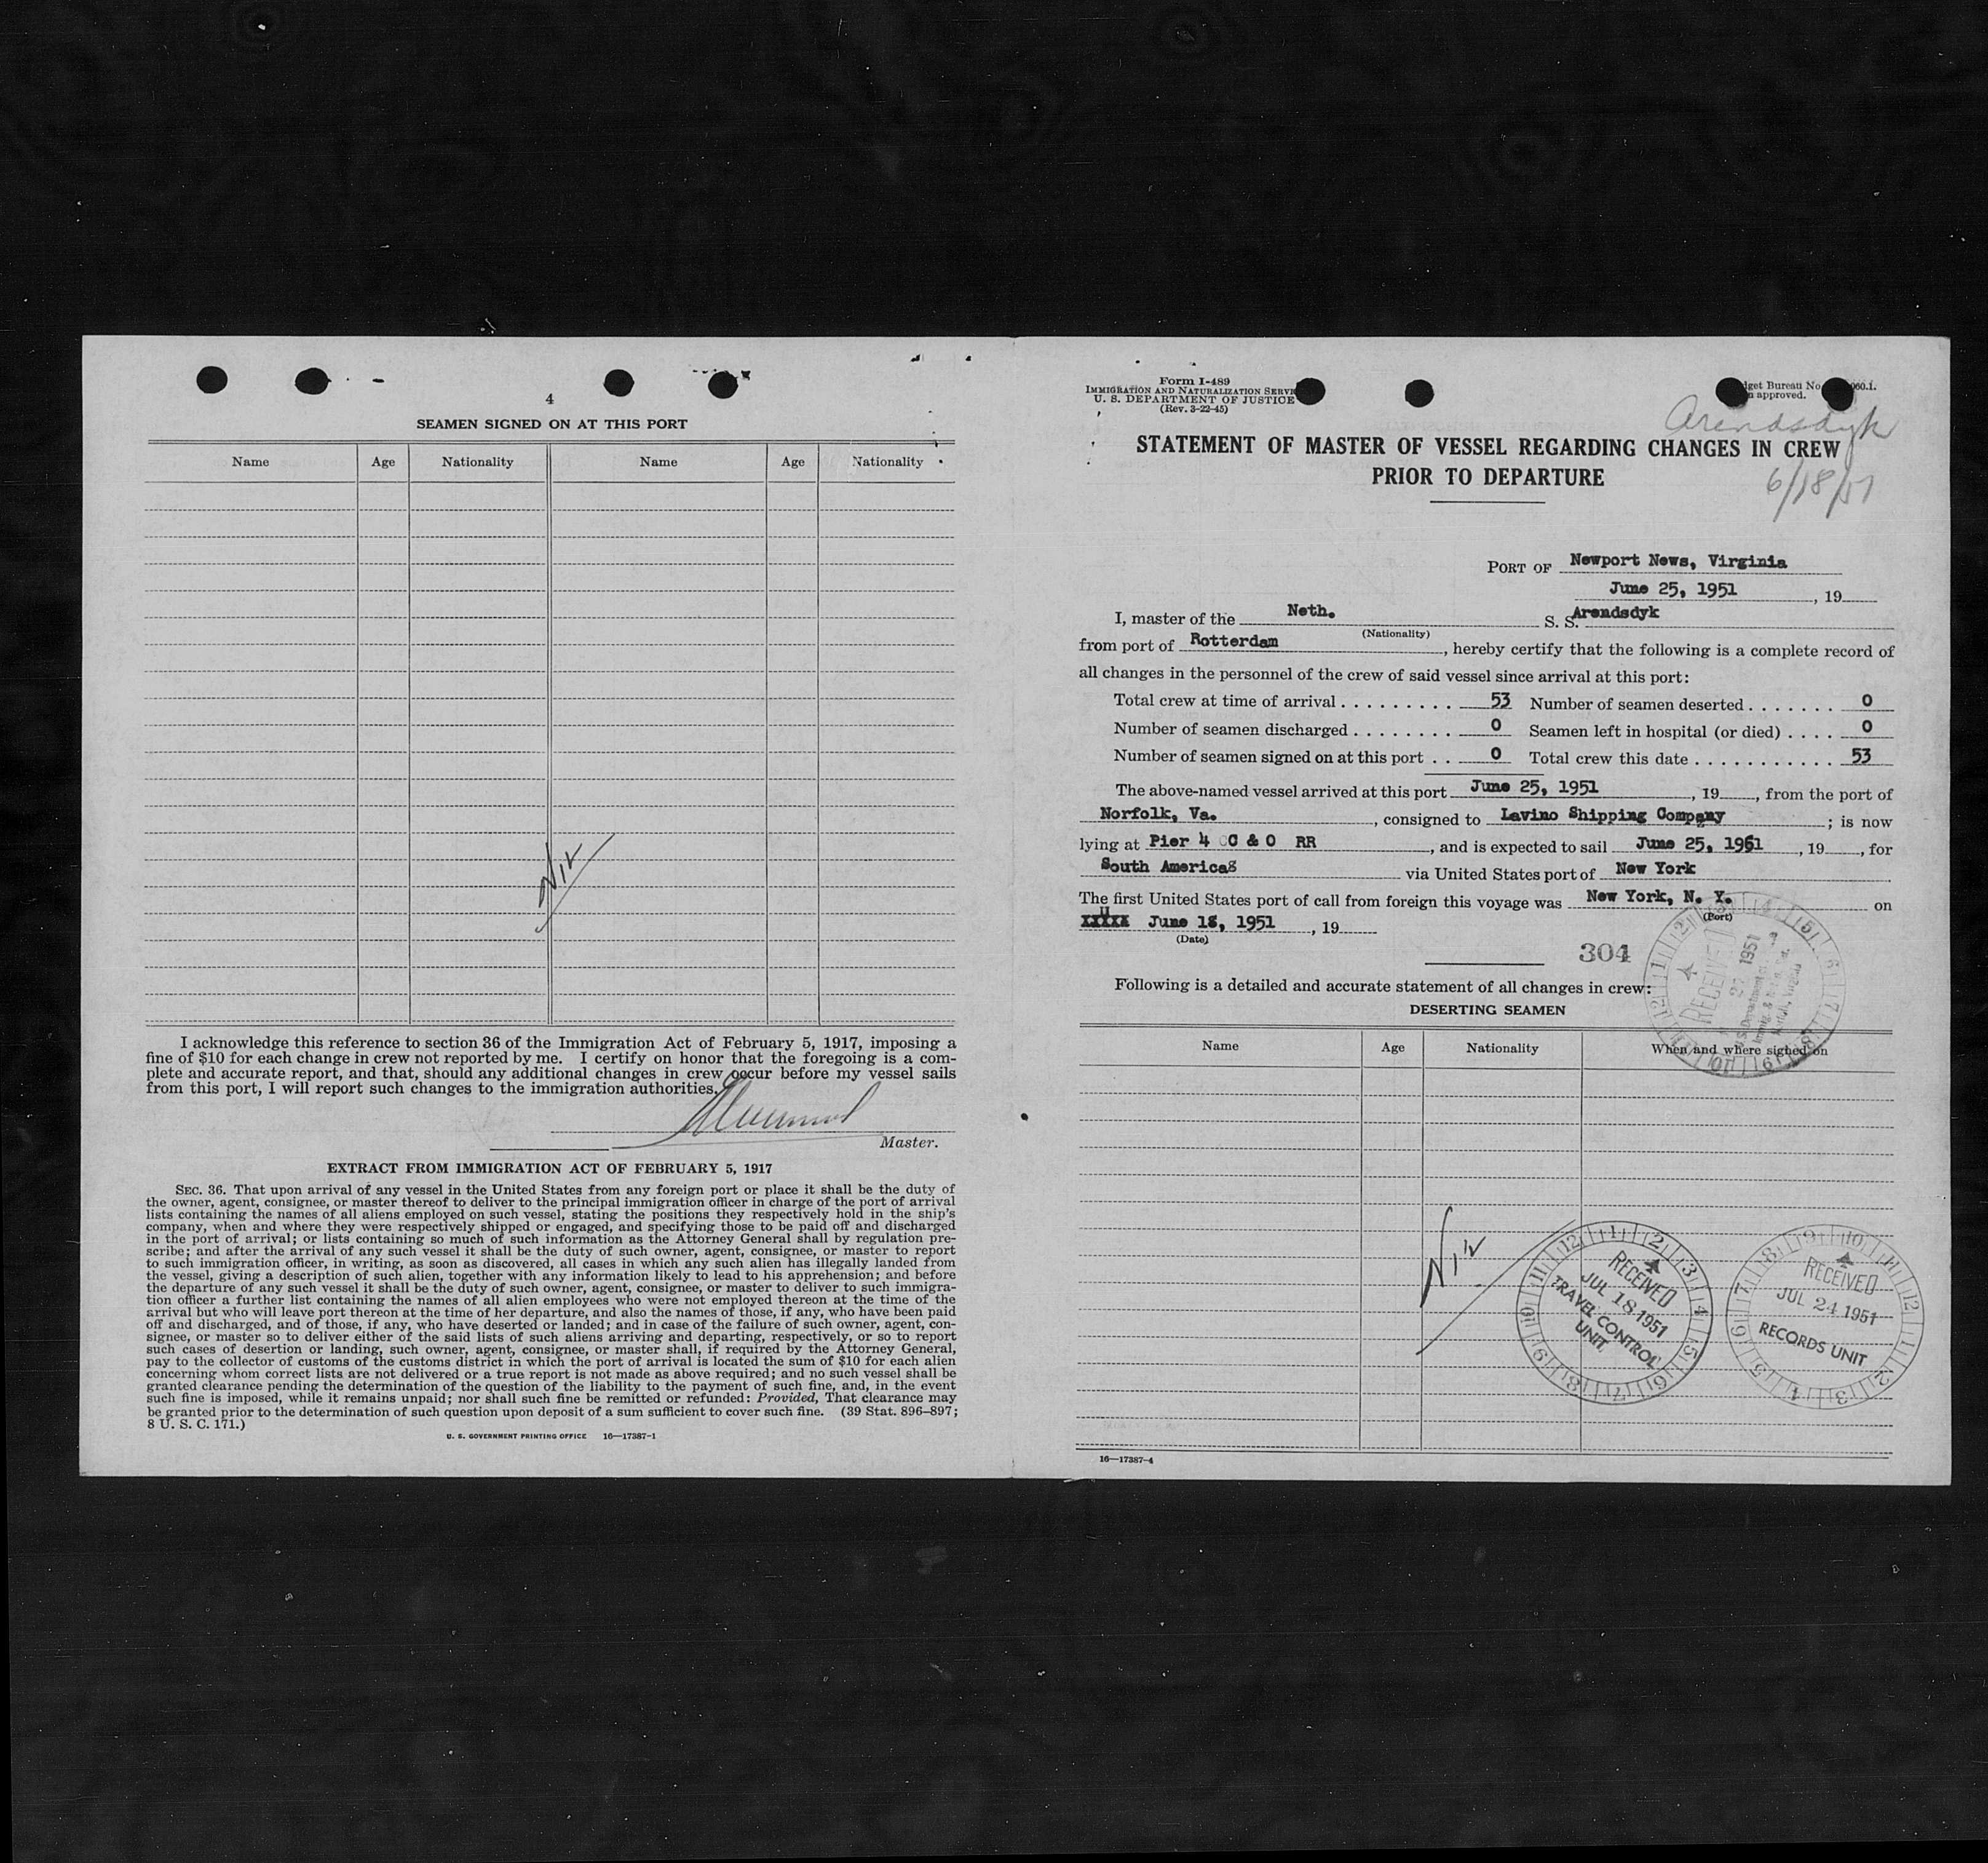 4
SEAMEN SIGNED ON AT THIS PORT
Name Age Nationality Name Age Nationality
Nil
I acknowledge this reference to section 36 of the Immigration Act of February 5, 1917, imposing a
fine of $10 for each change in crew not reported by me. I certify on honor that the foregoing is a com-
plete and accurate report, and that, should any additional changes in crew occur before my vessel sails
from this port, I will report such changes to the immigration authorities.
Master.
EXTRACT FROM IMMIGRATION ACT OF FEBRUARY 5, 1917
SEC. 36. That upon arrival of any vessel in the United States from any foreign port or place it shall be the duty of
the owner, agent, consignee, or master thereof to deliver to the principal immigration officer in charge of the port of arrival
lists containing the names of all aliens employed on such vessel, stating the positions they respectively hold in the ship's
company, when and where they were respectively shipped or engaged, and specifying those to be paid off and discharged
in the port of arrival; or lists containing so much of such information as the Attorney General shall by regulation pre-
scribe; and after the arrival of any such vessel it shall be the duty of such owner, agent, consignee, or master to report
to such immigration officer, in writing, as soon as discovered, all cases in which any such alien has illegally landed from
the vessel, giving a description of such alien, together with any information likely to lead to his apprehension; and before
the departure of any such vessel it shall be the duty of such owner, agent, consignee, or master to deliver to such immigra-
tion officer a further list containing the names of all alien employees who were not employed thereon at the time of the
arrival but who will leave port thereon at the time of her departure, and also the names of those, if any, who have been paid
off and discharged, and of those, if any, who have deserted or landed; and in case of the failure of such owner, agent, con-
signee, or master so to deliver either of the said lists of such aliens arriving and departing, respectively, or so to report
such cases of desertion or landing, such owner, agent, consignee, or master shall, if required by the Attorney General,
pay to the collector of customs of the customs district in which the port of arrival is located the sum of $10 for each alien
concerning whom correct lists are not delivered or a true report is not made as above required; and no such vessel shall be
granted clearance pending the determination of the question of the liability to the payment of such fine, and, in the event
such fine is imposed, while it remains unpaid; nor shall such fine be remitted or refunded: Provided, That clearance may
be granted prior to the determination of such question upon deposit of a sum sufficient to cover such fine. (39 Stat. 896–897;
8 U. S. C. 171.)
U. S. GOVERNMENT PRINTING OFFICE 16—17387-1
Form I-489
IMMIGRATION AND NATURALIZATION SERVI
U. S. DEPARTMENT OF JUSTICE
(Rev. 3-22-45)
get Bureau No. 060.1.
approved.
Arendsdyk
STATEMENT OF MASTER OF VESSEL REGARDING CHANGES IN CREW
PRIOR TO DEPARTURE
6/18/51
PORT OF Newport News, Virginia
June 25, 1951, 19
I, master of the Neth. S. S. Arendsdyk
(Nationality)
from port of Rotterdam, hereby certify that the following is a complete record of
all changes in the personnel of the crew of said vessel since arrival at this port:
Total crew at time of arrival . . . . . . . . . 53 Number of seamen deserted . . . . . . . 0
Number of seamen discharged . . . . . . . . 0 Seamen left in hospital (or died) . . . . 0
Number of seamen signed on at this port . . 0 Total crew this date . . . . . . . . . . . 53
The above-named vessel arrived at this port June 25, 1951, 19, from the port of
Norfolk, Va., consigned to Lavino Shipping Company; is now
lying at Pier 4 C & O RR, and is expected to sail June 25, 1951, 19, for
South America via United States port of New York
The first United States port of call from foreign this voyage was New York, N. Y. on
(Port)
June 18, 1951, 19
(Date)
304
RECEIVED
27 1951
Following is a detailed and accurate statement of all changes in crew:
DESERTING SEAMEN
Name Age Nationality When and where signed on
Nil
RECEIVED
JUL 18 1951
TRAVEL CONTROL
UNIT
RECEIVED
JUL 24 1951
RECORDS UNIT
16—17387-4